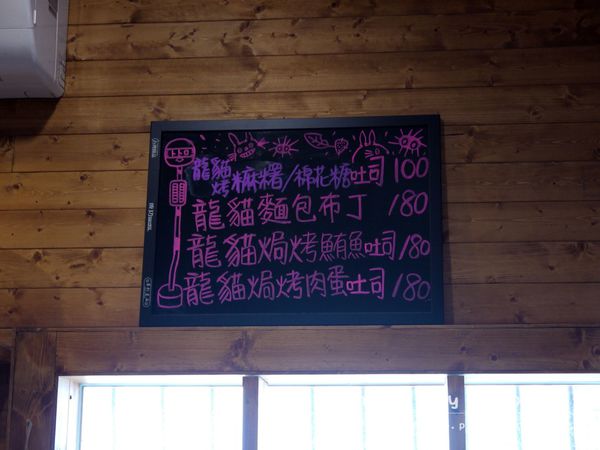 トトロ
龍貓烤麻糬/棉花糖吐司 100
龍貓麵包布丁 180
龍貓焗烤鮪魚吐司 180
龍貓焗烤肉蛋吐司 180